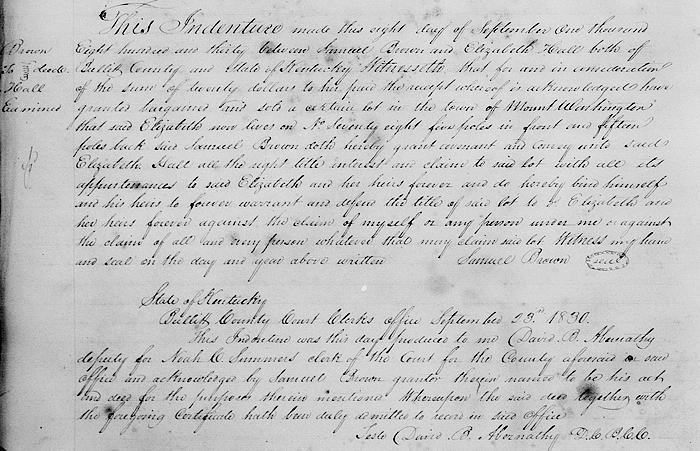 This Indenture made this eight day of September One thousand
Eight hundred and thirty between Samuel Brown and Elizabeth Hall both of
Bullitt County and State of Kentucky Witnesseth that for and in consideration
of the sum of twenty dollars to him paid the receipt whereof is acknowledged have
granted bargained and sold a certain lot in the town of Mount Washington
that said Elizabeth now lives on No Seventy eight five poles in front and fifteen
poles back said Samuel Brown doth hereby grant covenant and convey unto said
Elizabeth Hall all the right title interest and claim to said lot with all its
appurtenances to said Elizabeth and her heirs forever and do hereby bind himself
and his heirs to forever warrant and defend the title of said lot to sd Elizabeth and
her heirs forever against the claim of myself or any person under me or against
the claim of all and every person whatever that may claim said lot Witness my hand
and seal on the day and year above written Samuel Brown seal
Brown
To deede
Hall
Examined
State of Kentucky
Bullitt County Court Clerks office September 23rd 1830.
This Indenture was this day produced to me David B. Abernathy
deputy for Noah C. Summers clerk of the Court for the County aforesaid in said
office and acknowledged by Samuel Brown grantor therein named to be his act
and deed for the purposes therein mentioned Whereupon the said deed together with
the foregoing Certificate hath been duly admitted to record in said office
Teste David B. Abernathy D.C.B.C.C.